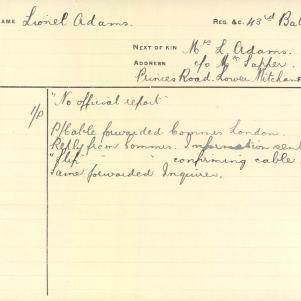 NAME Lionel Adams. REG. &C. 43rd Bat
NEXT OF KIN Mrs L. Adams.
ADDRESS c/o Mrs Sapper.
Princes Road. Lower Mitcham
"No official report"
P/Cable forwarded Commes London.
Reply from Commes. Information sent
"Slip" " " confirming cable
Same forwarded Inquirer.